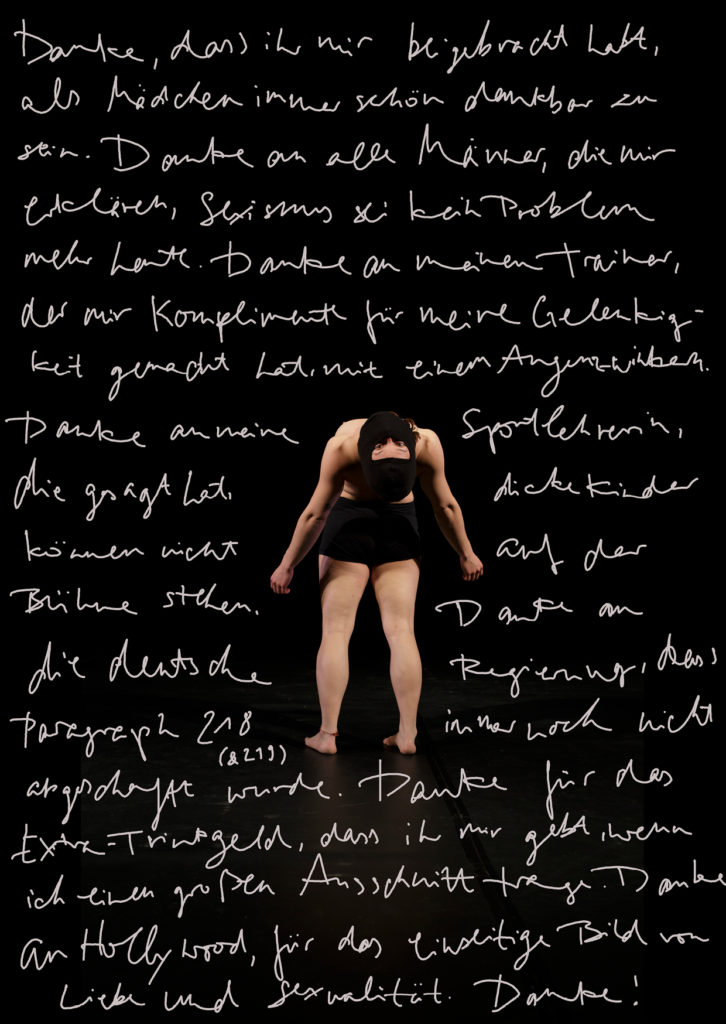 Danke, dass ihr mir beigebracht habt,
als Mädchen immer schön dankbar zu
sein. Danke an alle Männer, die mir
erklären, Sexismus sei kein Problem
mehr heute. Danke an meinen Trainer,
der mir Komplimente für meine Gelenkig-
keit gemacht hat, mit einem Augenzwinkern.
Danke an meine Sportlehrerin,
die gesagt hat, dicke Kinder
können nicht auf der
Bühne stehen. Danke an
die deutsche Regierung, dass
Paragraph 218 immer noch nicht
(& 219)
abgeschafft wurde. Danke für das
Extra-Trinkgeld, dass ihr mir gebt, wenn
ich einen großen Ausschnitt trage. Danke
an Hollywood, für das einseitige Bild von
Liebe und Sexualität. Danke!